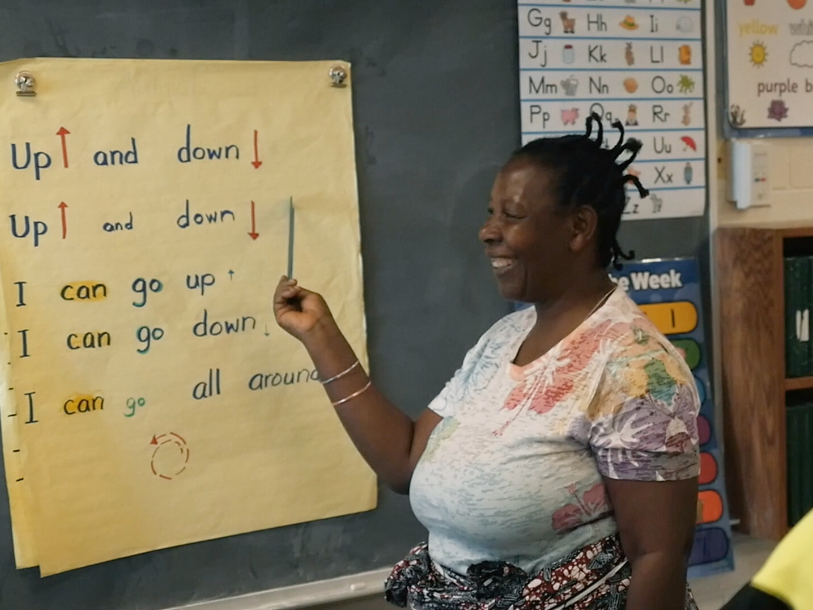 Up ↑ and down ↓
Up ↑ and down ↓
I can go up ↑
I can go down ↓
I can go all around
Gg Hh Ii
Jj Kk Ll
Mm Nn Oo
Pp Qq Rr
Uu
Xx
Zz
yellow
purple
the Week